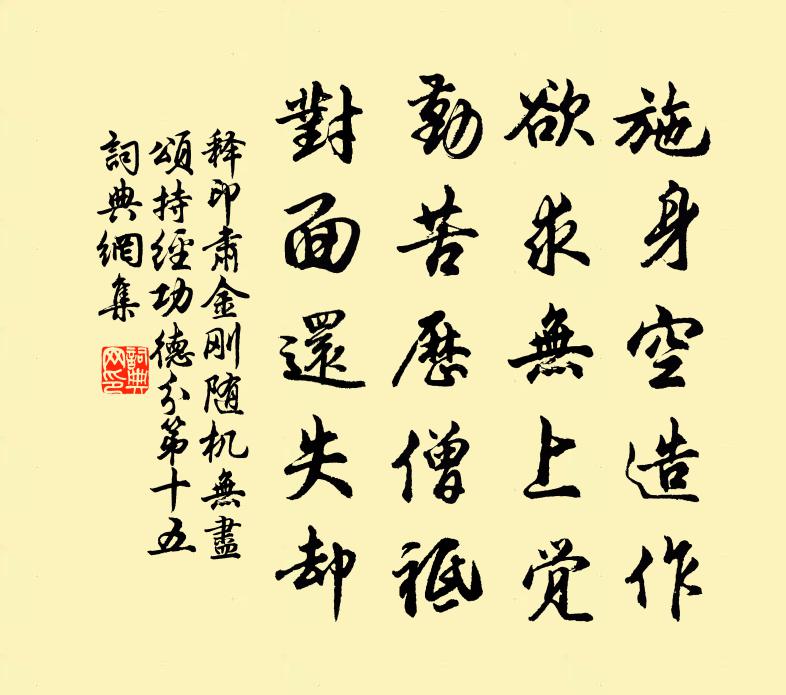 施身空造作
欲求無上覺
勤苦歷僧祇
對面還失却
释印肅金剛随机無盡
頌持經功德分第十五
詞典網集
詞典網印